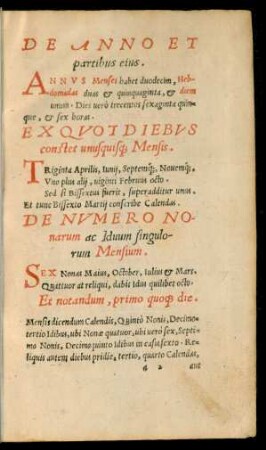 DE ANNO ET
partibus eius.
ANNVS Menses habet duodecim, Heb-
domadas duas & quinquaginta, & diem
unum. Dies uerò trecentos sexaginta quin-
que, & sex horas.
EX QVOT DIEBVS
constet unusquisq; Mensis.
TRiginta Aprilis, Iunij, Septemq́;, Nouemq́;,
Vno plus alij, uiginti Februus octo.
Sed si Bissextus fuerit, superadditur unus.
Et tunc Bissexto Martij conscribe Calendas.
DE NVMERO NO-
narum ac Iduum singulo-
rum Mensium.
SEX Nonas Maius, October, Iulius & Mars.
Quattuor at reliqui, dabit Idus quilibet octo.
Et notandum, primo quoq; die.
Mensis dicendum Calendis, Quintò Nonis, Decimo-
tertio Idibus, ubi Nonæ quatuor, ubi uerò sex, Septi-
mo Nonis, Decimoquinto Idibus in casu sexto. Re-
liquis autem diebus pridie, tertio, quarto Calendas,
a 2